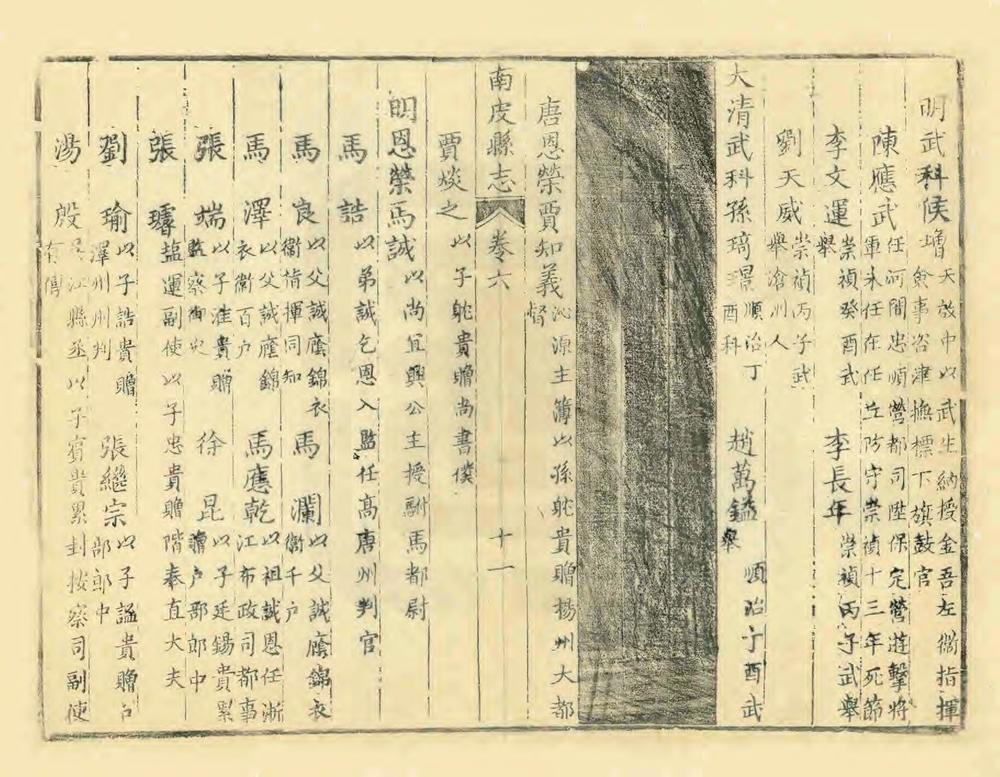 明武科侯增天啟中以武生納授金吾左衛指揮
僉事咨津撫標下旗鼓官
陳應武任河間忠順營都司陞保定營遊擊將
軍未任在任左防守崇禎十三年死節
李文運崇禎癸酉武舉　李長年崇禎丙子武舉
劉天威崇禎丙子武舉滄州人
大清武科孫璃璟順治丁酉科　趙萬鎰順治丁酉武舉
唐恩榮賈知義沁源主簿以孫躭貴贈揚州大都督
南皮縣志　卷六　十一
賈焱之以子躭貴贈尚書僕
明恩榮馬誠以尚宜興公主授駙馬都尉
馬誥以弟誠乞恩入監任高唐州判官
馬良以父誠廕錦衣衛指揮同知　馬瀾以父誠廕錦衣衛千戶
馬澤以父誠廕錦衣衛百戶　馬應乾以祖誠恩任浙江布政司都事
張端以子淮貴贈監察御史　徐昆以子廷錫貴累贈戶部郎中
張璿鹽運副使以子忠貴贈階奉直大夫
劉瑜以子誥貴贈澤州州判　張繼宗以子謐貴贈戶部郎中
湯殷吳江縣丞以子賓貴累封按察司副使有傳